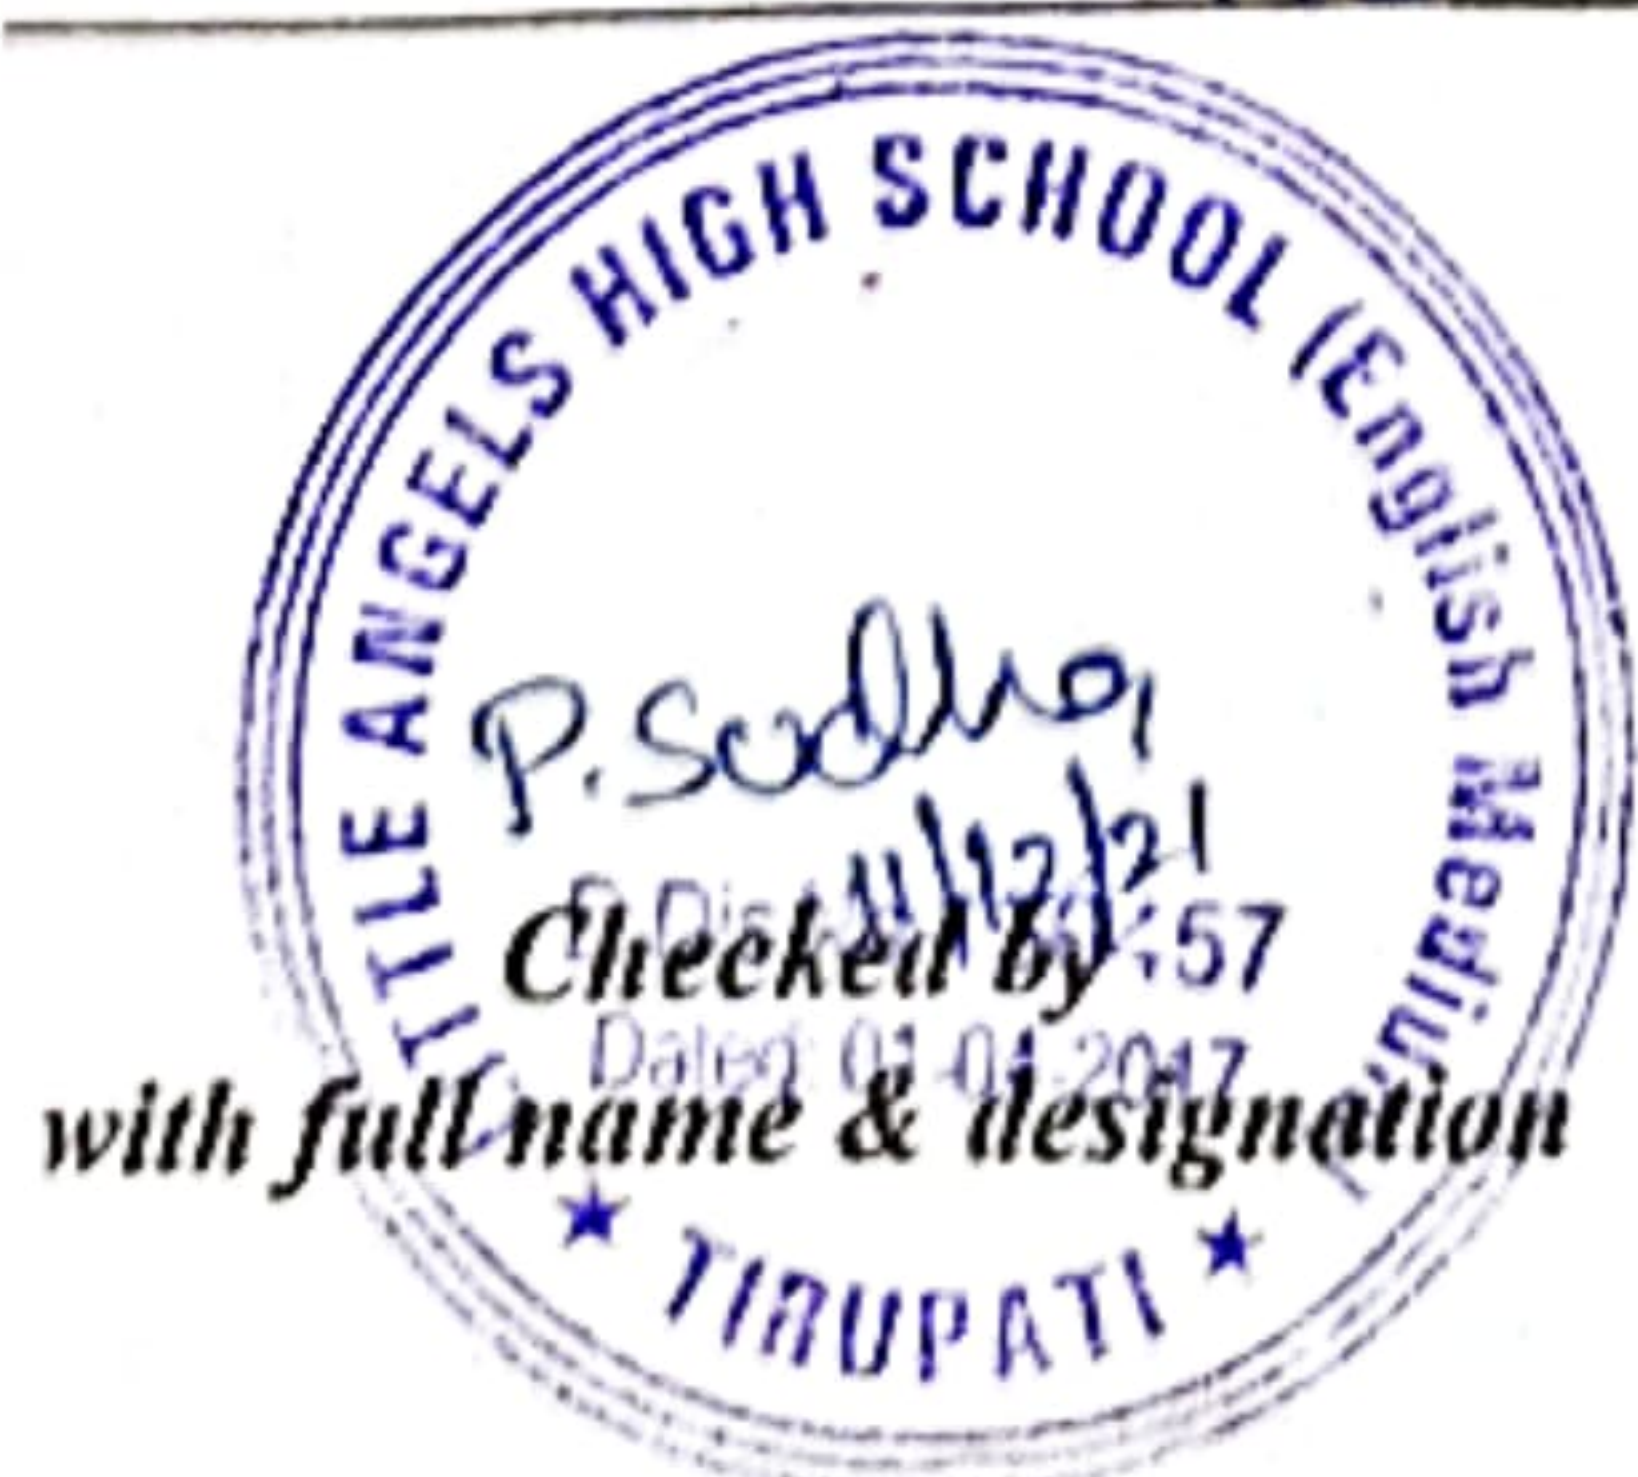 LITTLE ANGELS HIGH SCHOOL (English Medium)
P. Sudha
11/12/21
57
Checked by
Dated: 01-04-2017
with full name & designation
★ TIRUPATI ★